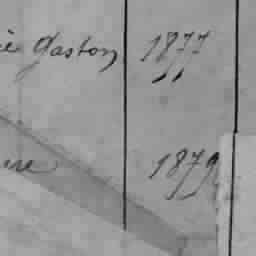 ie Gaston 1877
"
ure 1879